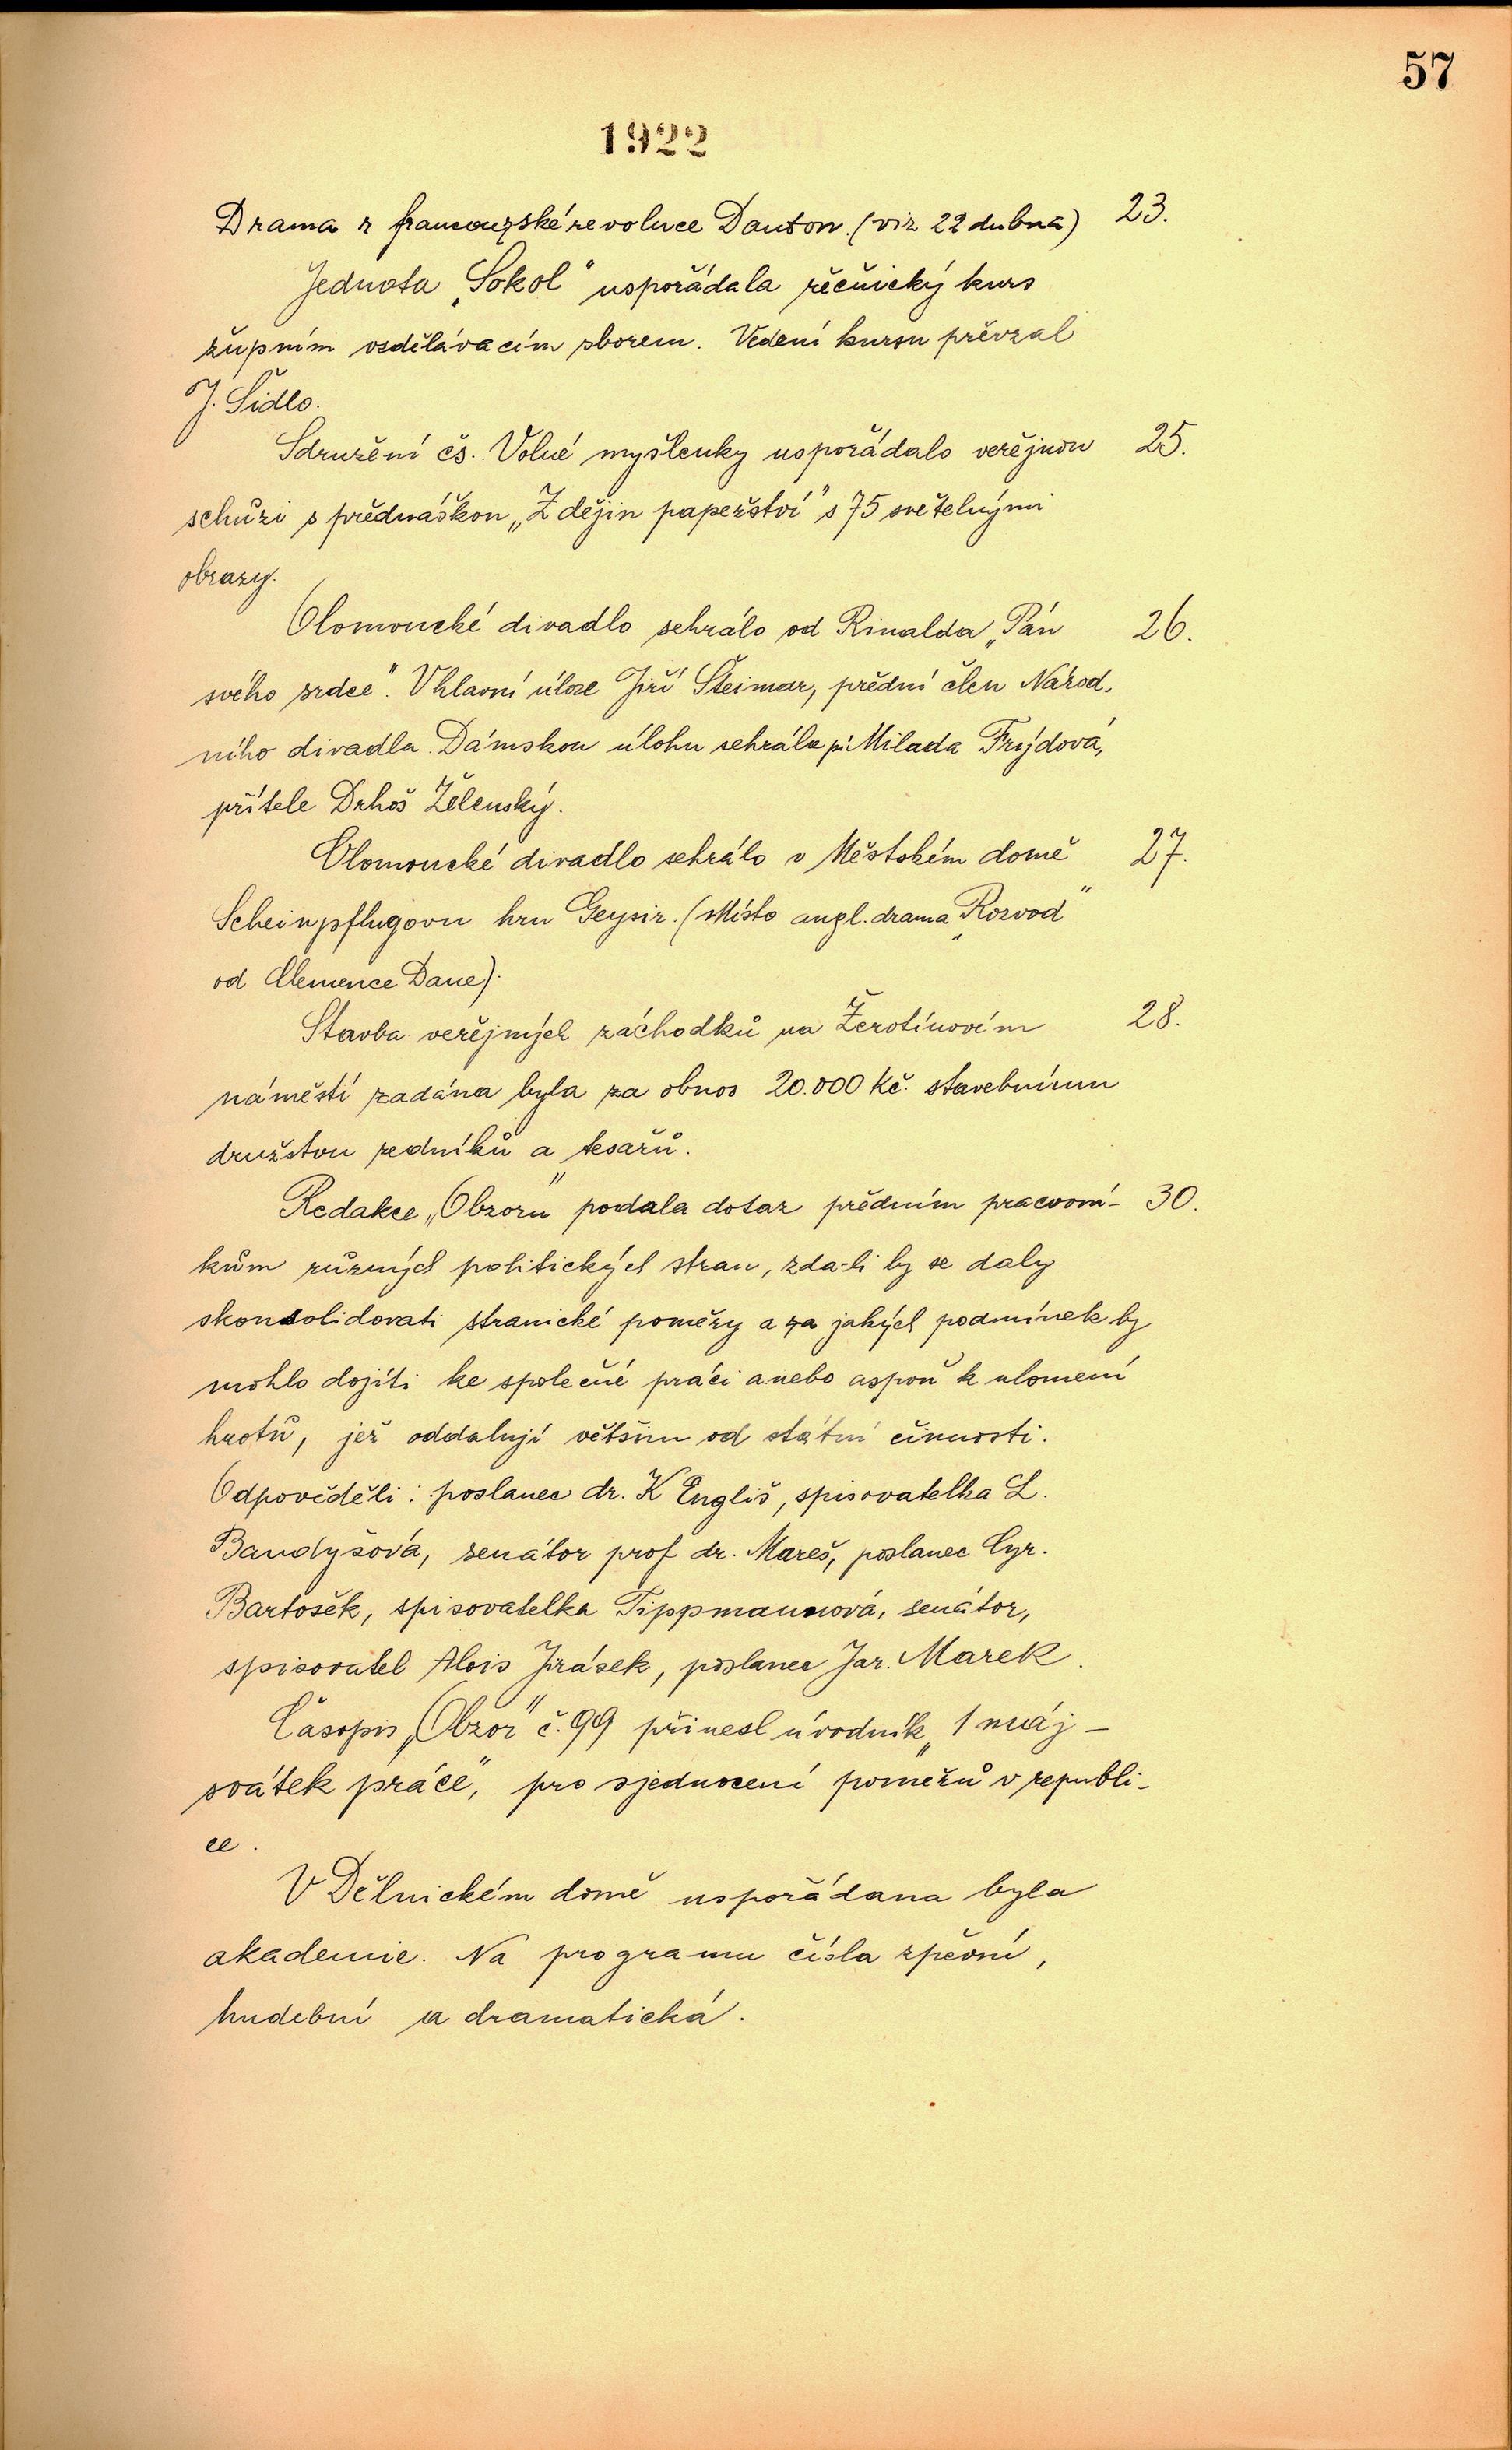 57
1922
Drama z francouzské revoluce Danton. (viz 22 dubna) 23.
Jednota „Sokol" uspořádala řečnický kurs
župním vzdělávacím sborem. Vedení kursu převzal
J. Šidlo.
Sdružení čs. Volné myšlenky uspořádalo veřejnou 25.
schůzi s přednáškou „Z dějin papežství" s 75 světelnými
obrazy.
Olomoucké divadlo sehrálo od Rinalda „Pán 26.
svého srdce". V hlavní úloze Jiří Steimar, přední člen Národ-
ního divadla. Dámskou úlohu sehrála pí Milada Frýdová,
přítele Drhoš Želenský.
Olomoucké divadlo sehrálo v Městském domě 27.
Scheinpflugovu hru Geysir. (Místo angl. drama „Rozvod"
od Clemence Dane).
Stavba veřejných záchodků na Žerotínovém 28.
náměstí zadána byla za obnos 20.000 Kč. stavebnímu
družstvu zedníků a tesařů.
Redakce „Obzoru" podala dotaz předním pracovní- 30.
kům různých politických stran, zda-li by se daly
skonsolidovati stranické poměry a za jakých podmínek by
mohlo dojíti ke společné práci anebo aspoň k ulomení
hrotů, jež oddalují většinu od státní činnosti.
Odpověděli: poslanec dr. K Engliš, spisovatelka L.
Baudyšová, senátor prof dr. Mareš, poslanec Cyr.
Bartošěk, spisovatelka Tippmannová, senátor,
spisovatel Alois Jirásek, poslanec Jar. Marek.
Časopis „Obzor" č. 99 přinesl úvodník „1 máj –
svátek práce", pro sjednocení poměrů v republi-
ce.
V Dělnickém domě uspořádana byla
akademie. Na programu čísla zpěvní,
hudební a dramatická.